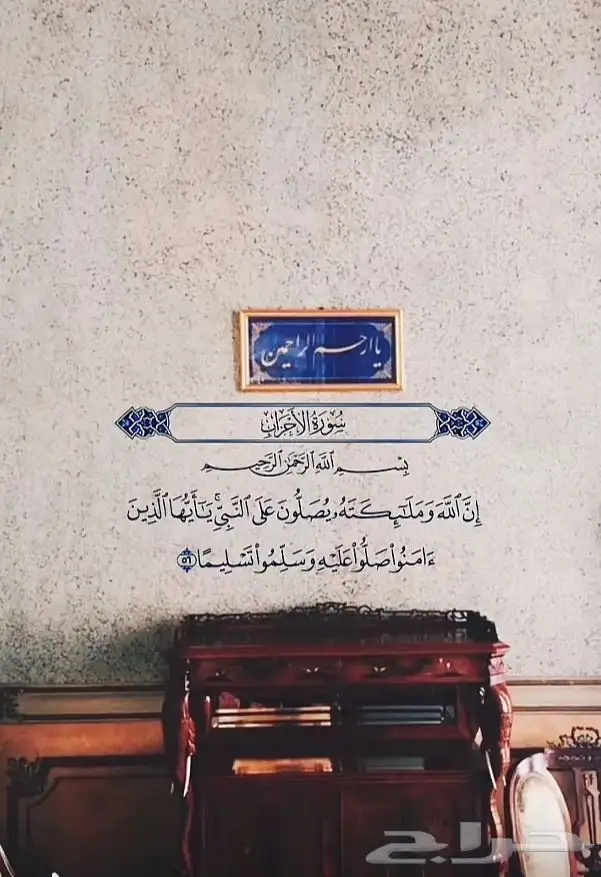 يا ارحم الراحمين
سُورَةُ الأَحْزَابِ
بِسْمِ ٱللَّهِ ٱلرَّحْمَٰنِ ٱلرَّحِيمِ
إِنَّ ٱللَّهَ وَمَلَٰٓئِكَتَهُۥ يُصَلُّونَ عَلَى ٱلنَّبِيِّۚ يَٰٓأَيُّهَا ٱلَّذِينَ
ءَامَنُوا۟ صَلُّوا۟ عَلَيْهِ وَسَلِّمُوا۟ تَسْلِيمًا ٥٦
حراج